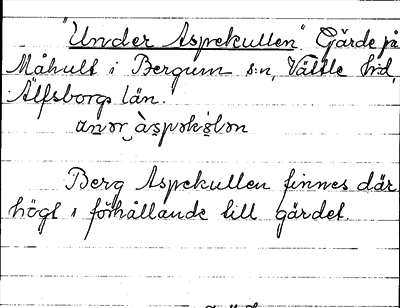 "Under Aspekullen" Gärde på
Måhult i Bergum s:n, Vättle hd,
Älfsborgs län.
Berg Aspekullen finnes där
högt i förhållande till gärdet.